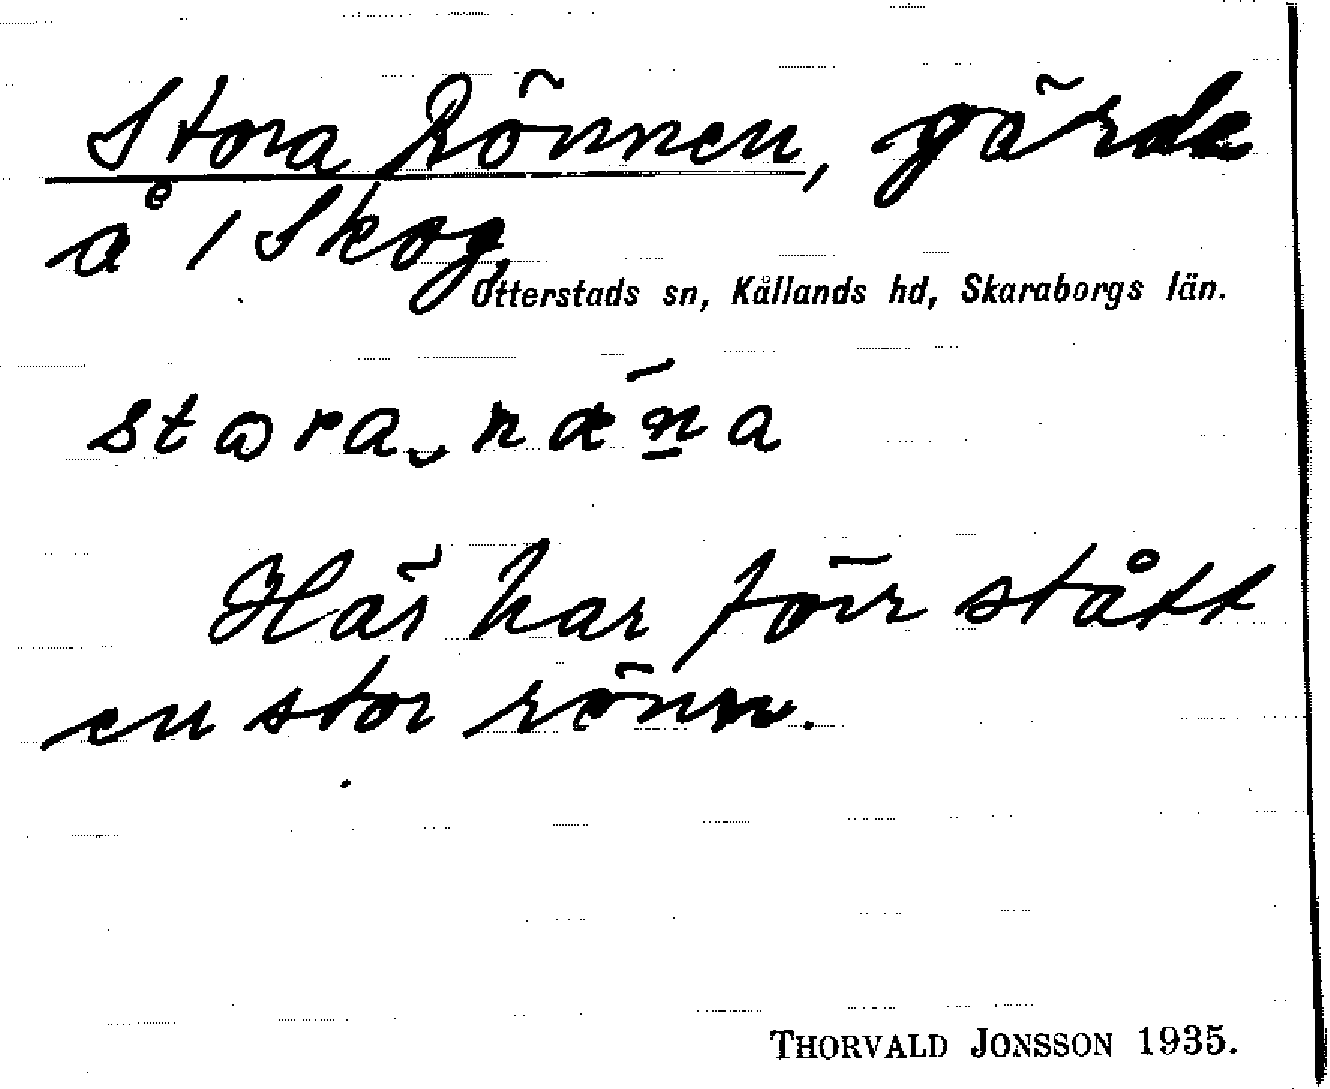 Stora Rönnen, gärde
å 1 Skog
Otterstads sn, Kållands hd, Skaraborgs län.
Här har förr stått
en stor rönn.
THORVALD JONSSON 1935.